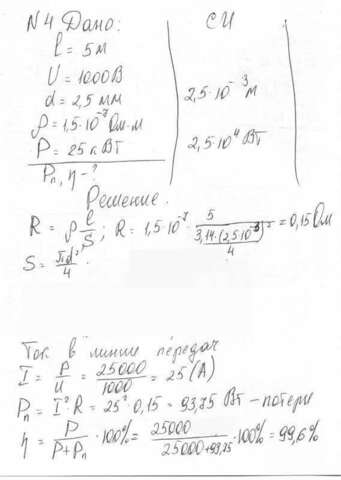 N4 Дано:
СИ
l = 5 м
U = 1000 В
d = 2,5 мм
2,5·10⁻³ м
ρ = 1,5·10⁻⁷ Ом·м
P = 25 кВт
2,5·10⁴ Вт
Pп, η - ?
Решение.
R = ρ l/S ; R = 1,5·10⁻⁷ · 5/(3,14·(2,5·10⁻³)²/4) = 0,15 Ом
S = πd²/4
Ток в линии передач
I = P/U = 25000/1000 = 25 (А)
Pп = I²·R = 25²·0,15 = 93,75 Вт - потери
η = P/(P+Pп) · 100% = 25000/(25000+93,75) · 100% = 99,6%